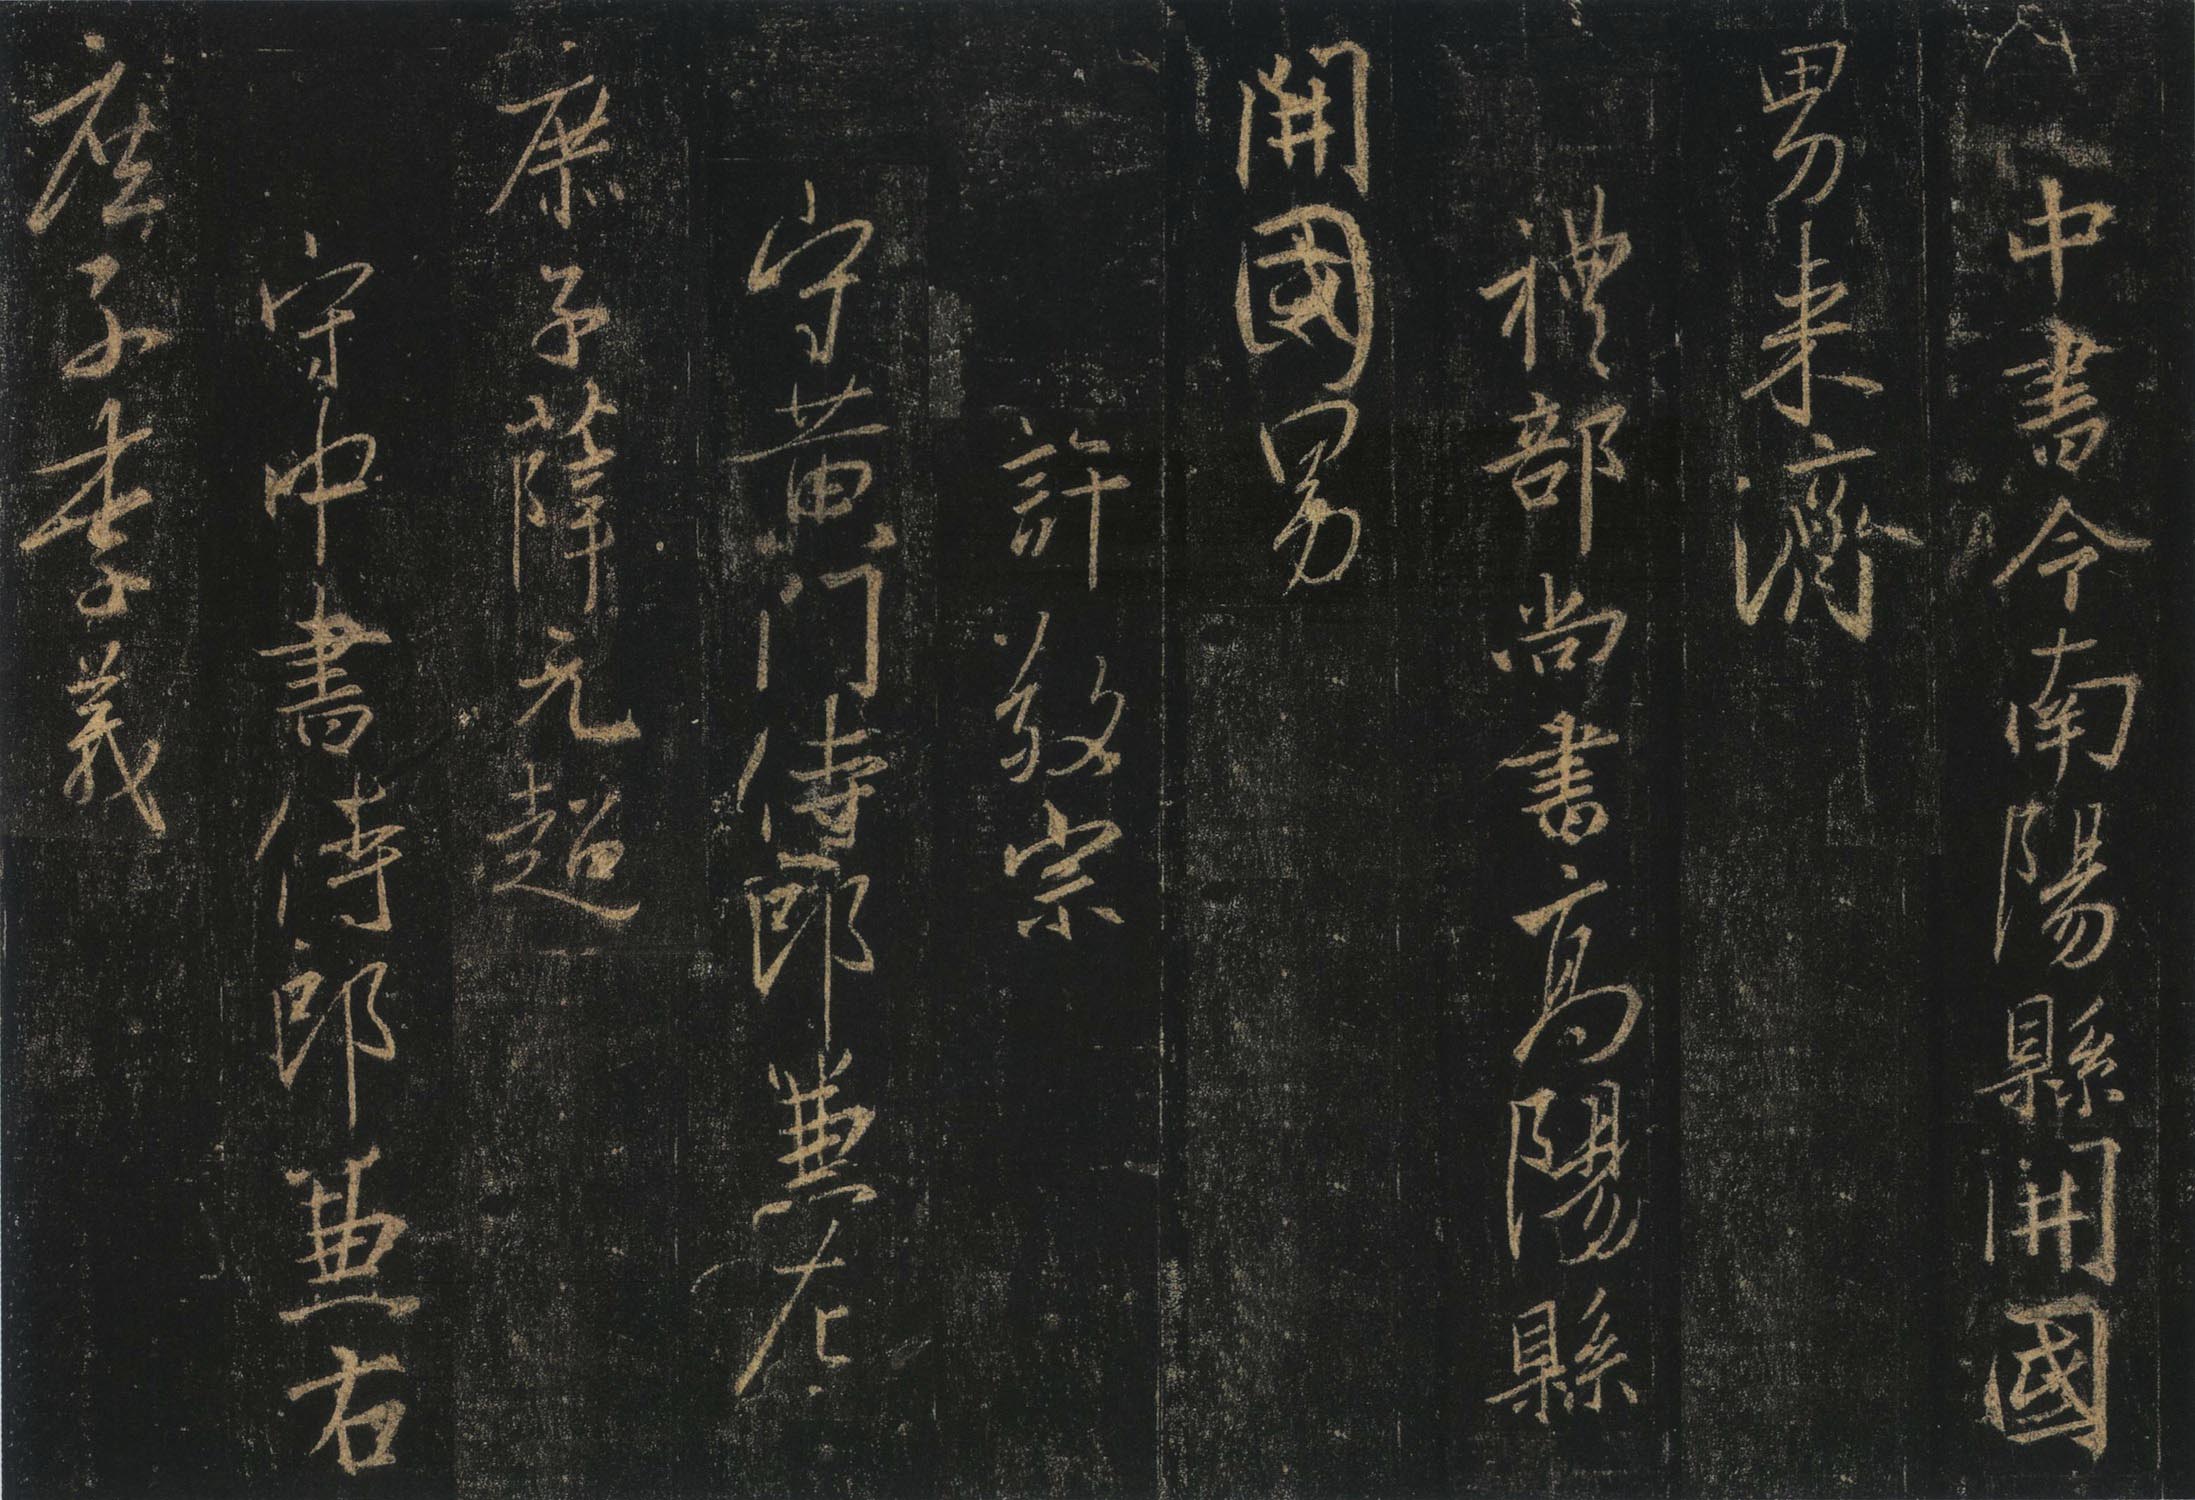 中書令南陽縣開國
男来濟
禮部尚書高陽縣
開國男
許敬宗
守黄門侍郎兼左
庶子薛元超
守中書侍郎兼右
庶子李義